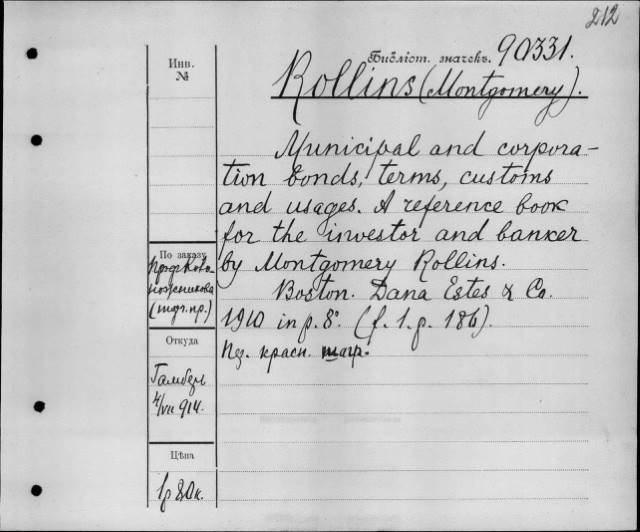 212
Инв.
№
Библіот. значекъ. 90331.
Rollins (Montgomery).
Municipal and corpora-
tion bonds, terms, customs
and usages. A reference book
for the investor and banker
by Montgomery Rollins.
Boston. Dana Estes & Co.
1910 in p. 8º. (f. 1. p. 186).
Пер. красн. шагр.
По заказу
Откуда
4/VII 914.
Цѣна
1 р 80 к.